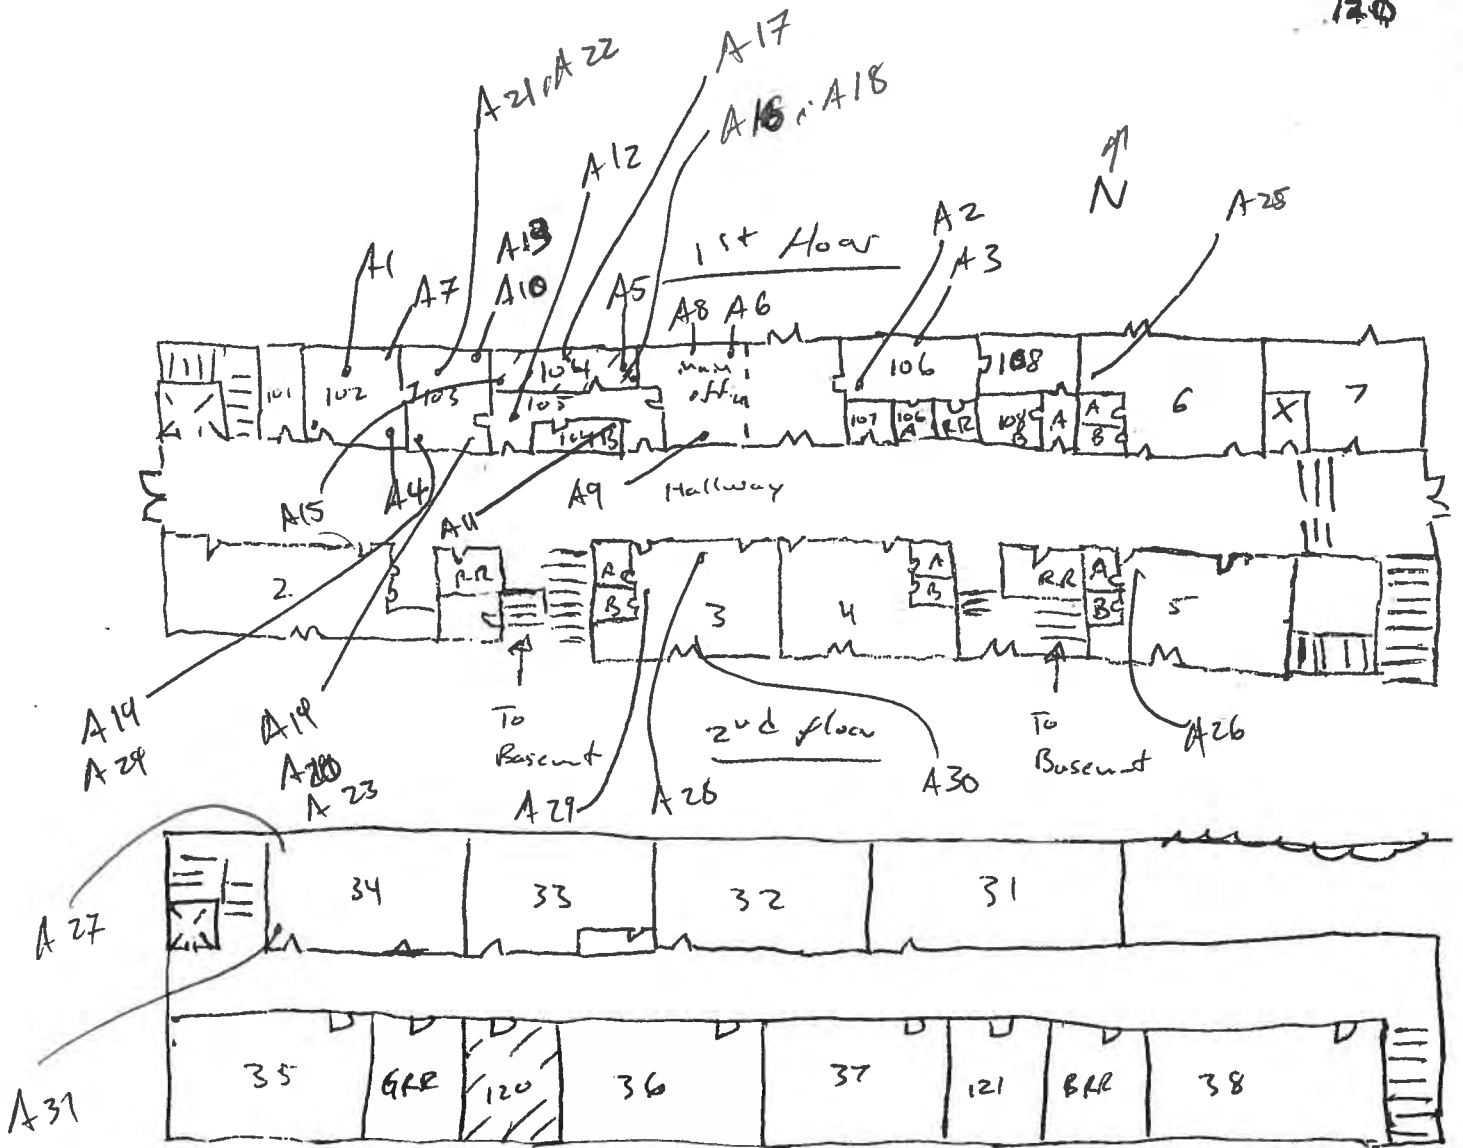 120
A17
A21, A22
A18
A12
A2
A25
A13
1st floor
A3
A1
A7
A10
A5
A8 A6
N
101
102
103
104
105
104 B
main
office
106
108
107
106
A
RR
108
B
A
A
B
6
X
7
A15
A4
A11
A9
Hallway
2
RR
A
B
3
4
A
B
RR
A
B
5
A19
A20
A23
To
Basement
2nd floor
To
Basement
A26
A29
A28
A30
A27
34
33
32
31
A31
35
GRR
120
36
37
121
BRR
38